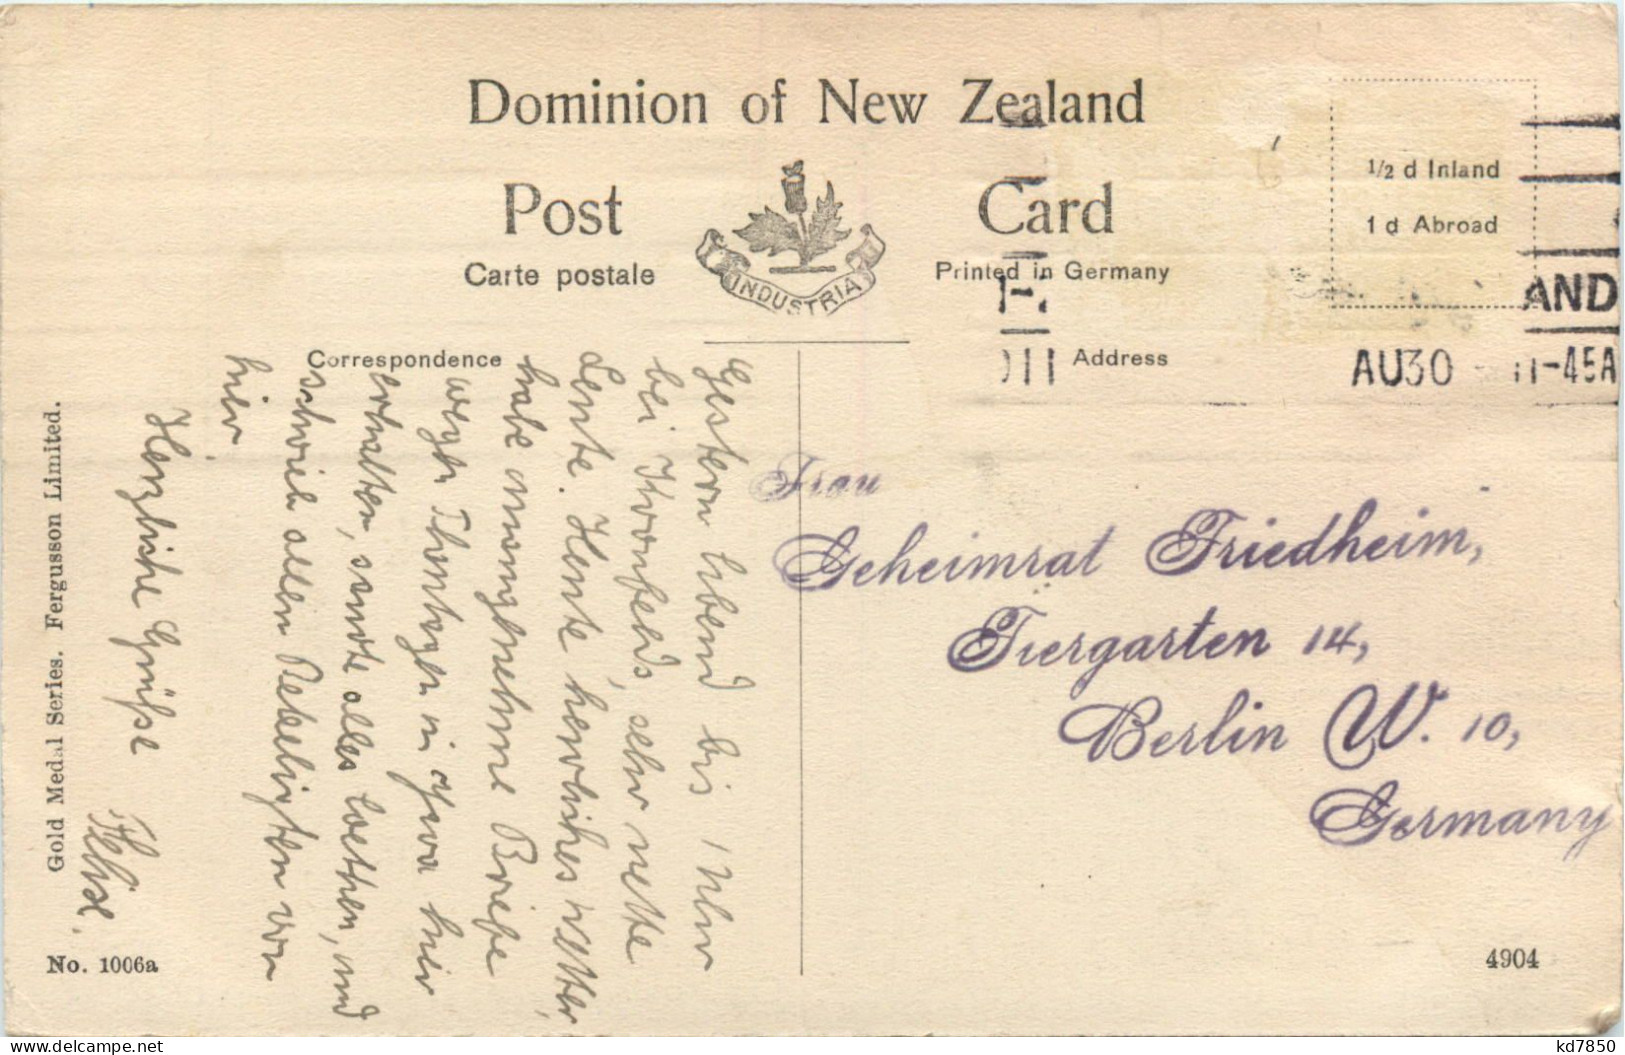 Dominion of New Zealand
Post Card
Carte postale
INDUSTRIA
Printed in Germany
1/2 d Inland
1 d Abroad
AND
Correspondence
Address
AU30 11-45A
Gestern Abend bis 1 Uhr
bei Kronfelds, sehr nette
Leute. Heute herrliches Wetter,
habe unangenehme Briefe
wegen in hier
erhalten, sandte alles und
schrieb allen Beteiligten von
hier.
Herzliche Grüße
Felix.
Frau
Geheimrat Friedheim,
Tiergarten 14,
Berlin W. 10,
Germany
Gold Medal Series. Fergusson Limited.
No. 1006a
4904
kd7850